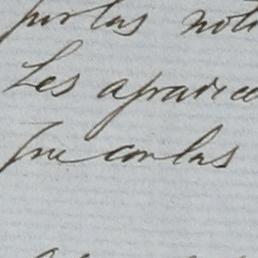 por las noti
Les apradice
Que con las